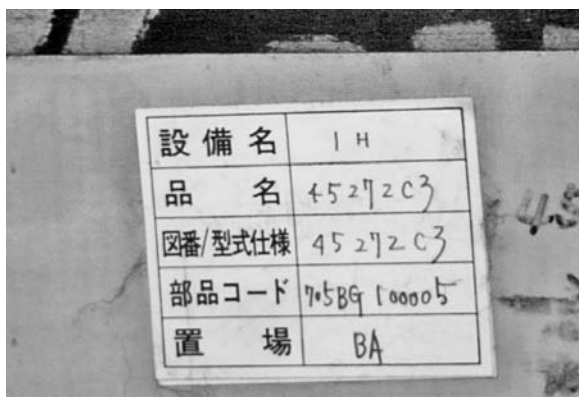 設備名 1H
品名 45272C3
図番/型式仕様 45272C3
部品コード 705BG100005
置場 BA